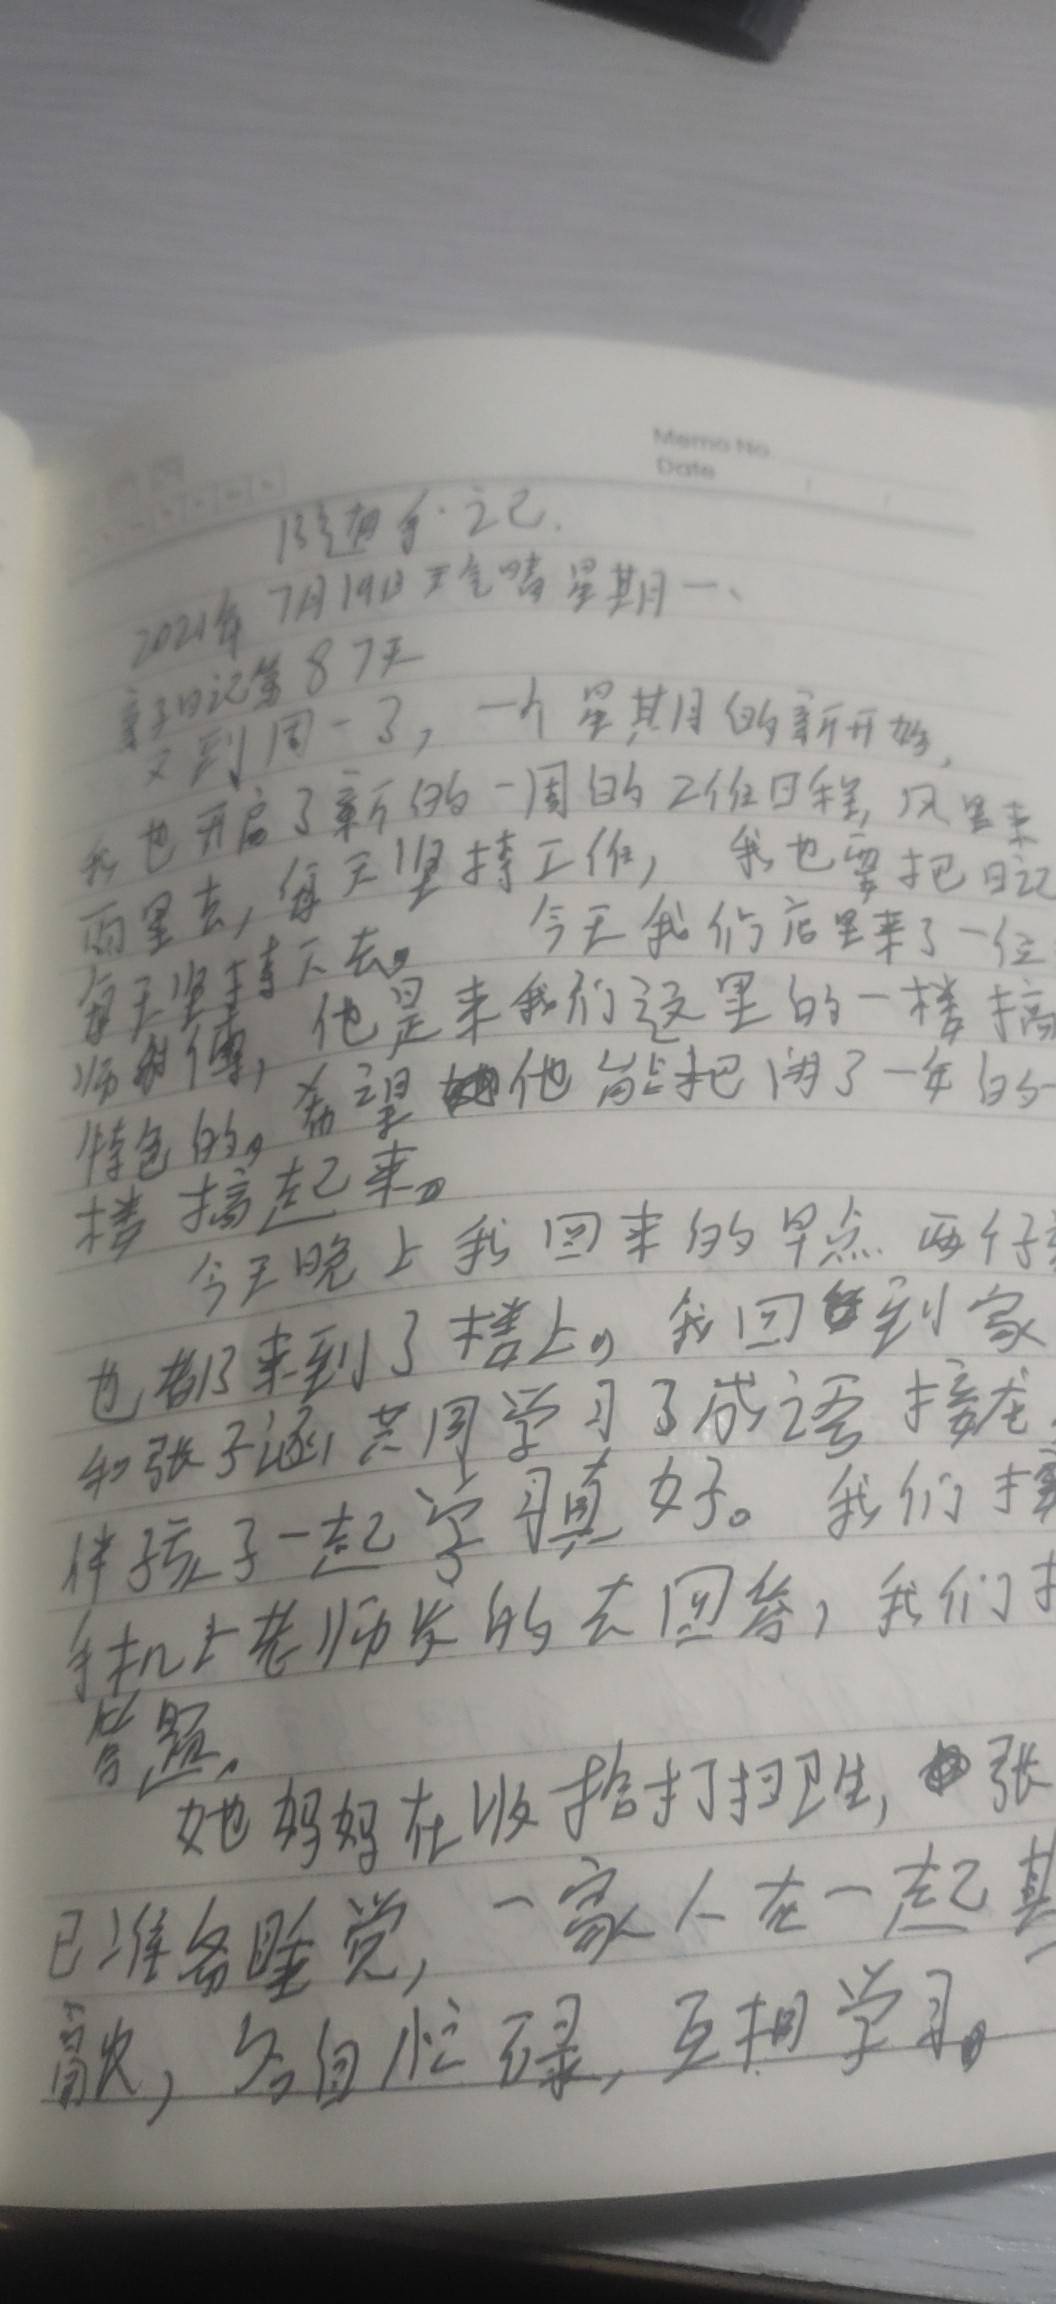 Memo No
Date
随想手之记.
2021年7月19日天气晴星期一、
亲子日记第87天
又到周一了，一个星其月的新开始，
我也开启了新的一周的工作日程，风里来
雨里去，每天坚持工作，我也要把日记
每天坚持下去。今天我们店里来了一位
师傅，他是来我们这里的一楼搞
特色的。希望他能把闭了一年的一
楼搞起来。
今天晚上我回来的早点.两仔
也都来到了楼上。我回到家
和张子涵共同学习了成语接龙，
伴孩子一起学习真好。我们
手机上老师发的去回答，我们
答题.
她妈妈在收拾打扫卫生，张
已准备睡觉，一家人在一起其
各自忙碌，互相学习。